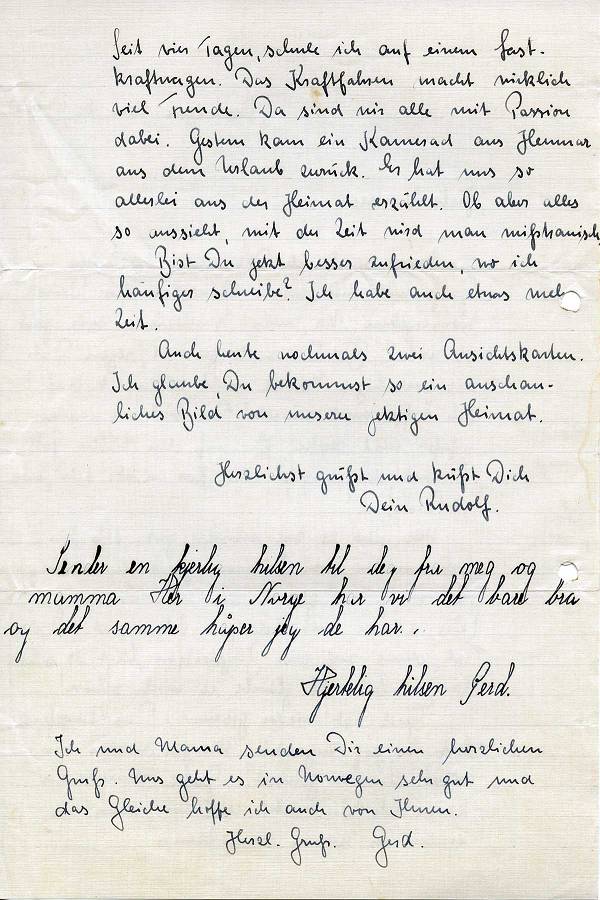 Seit vier Tagen, schule ich auf einem Last-
kraftwagen. Das Kraftfahren macht wirklich
viel Freude. Da sind wir alle mit Passion
dabei. Gestern kam ein Kamerad aus
aus dem Urlaub zurück. Er hat uns so
allerlei aus der Heimat erzählt. Ob aber alles
so aussieht, mit der Zeit wird man mißtrauisch
Bist Du jetzt besser zufrieden, wo ich
häufiger schreibe? Ich habe auch etwas mehr
Zeit.
Auch heute nochmals zwei Ansichtskarten.
Ich glaube, Du bekommst so ein anschau-
liches Bild von unserer jetztigen Heimat.
Herzlichst grüßt und küßt Dich
Dein Rudolf.
Sender en hjerlig hilsen til dey fra meg og
mamma Her i Norge har vi det bare bra
og det samme håper jey de har.
Hjertelig hilsen Gerd.
Ich und Mama senden Dir einen herzlichen
Gruß. Uns geht es in Norwegen sehr gut und
das Gleiche hoffe ich auch von Ihnen.
Herzl. Gruß. Gerd.